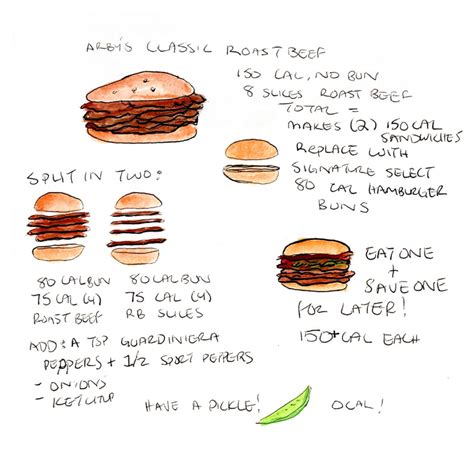 ARBY'S CLASSIC ROAST BEEF
150 CAL, NO BUN
8 SLICES ROAST BEEF
TOTAL =
MAKES (2) 150 CAL
SANDWICHES
REPLACE WITH
SIGNATURE SELECT
80 CAL HAMBURGER
BUNS
SPLIT IN TWO:
80 CAL BUN
75 CAL (4)
ROAST BEEF
80 CAL BUN
75 CAL (4)
RB SLICES
EAT ONE
+
SAVE ONE
FOR LATER!
150+ CAL EACH
ADD: A TSP GUARDINIERA
PEPPERS + 1/2 SPORT PEPPERS
- ONIONS
- KETCHUP
HAVE A PICKLE!
0CAL!